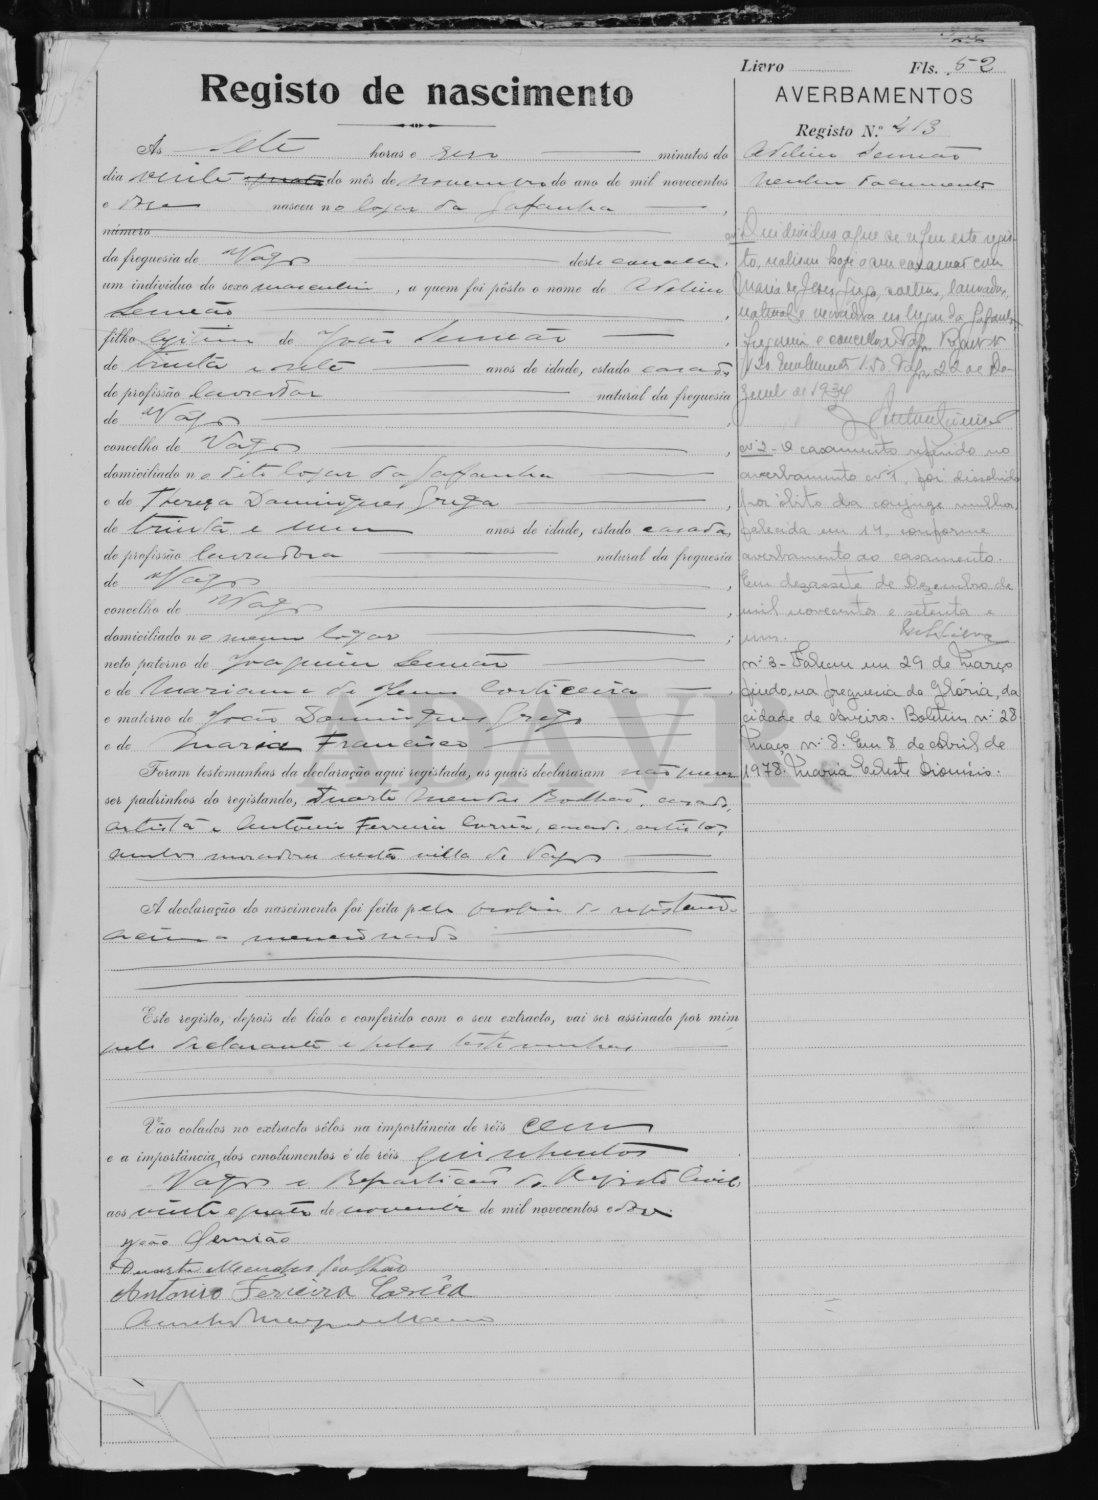 Livro Fls. 52
Registo de nascimento
AVERBAMENTOS
Registo N.º 413
Às sete horas e zero minutos do
dia vinte do mês de novembro do ano de mil novecentos
e doze nasceu no logar da Gafanha,
número
da freguesia de Vagos deste concelho,
um indivíduo do sexo masculino, a quem foi pôsto o nome de Adelino
Semião
filho legitimo de João Semião
de trinta e sete anos de idade, estado casado
de profissão lavrador natural da freguesia
de Vagos,
concelho de Vagos,
domiciliado no dito logar da Gafanha
e de Thereza Domingues Grega,
de trinta e um anos de idade, estado casada,
de profissão lavradora natural da freguesia
de Vagos,
concelho de Vagos,
domiciliado no mesmo logar;
neto paterno de Joaquim Semião
e de Marianna de Jesus Corticeira
e materno de João Domingues Grego
e de Maria Francisca
Foram testemunhas da declaração aqui registada, as quais declararam não querer
ser padrinhos do registando, Duarte Mendes Bodhão, casado,
artista e Antonio Ferreira Corrêa, casado, artista,
ambos moradores nesta villa de Vagos
A declaração do nascimento foi feita pelo do registando
acima mencionado
Este registo, depois de lido e conferido com o seu extracto, vai ser assinado por mim
pelo declarante e pelas testemunhas
Vão colados no extracto sêlos na importância de réis cem
e a importância dos emolumentos é de réis quinhentos
Vagos e Repartição do Registo Civil,
aos vinte e quatro de novembro de mil novecentos e doze
João Semião
Duarte Mendes
Antonio Ferreira Corrêa
Adelino Semião
nenhum documento
nº 1 O individuo a que se refere este regis-
to, realizou hoje o seu casamento com
Maria de Jesus Grega, solteira, lavradora,
natural e moradora no lugar da Gafanha
freguesia e concelho de Vagos
Vagos 22 de De-
zembro de 1934
nº 2 - O casamento referido no
averbamento nº 1, foi dissolvido
por óbito do conjuge mulher
falecida em 14, conforme
averbamento ao casamento.
Em dezassete de Dezembro de
mil novecentos e setenta e
um.
nº 3 - Faleceu em 29 de Março
findo, na freguesia da Glória, da
cidade de Aveiro. Boletim nº 28
Maço nº 8. Em 8 de Abril de
1978. Maria Celeste Dionísio.
ADAVR